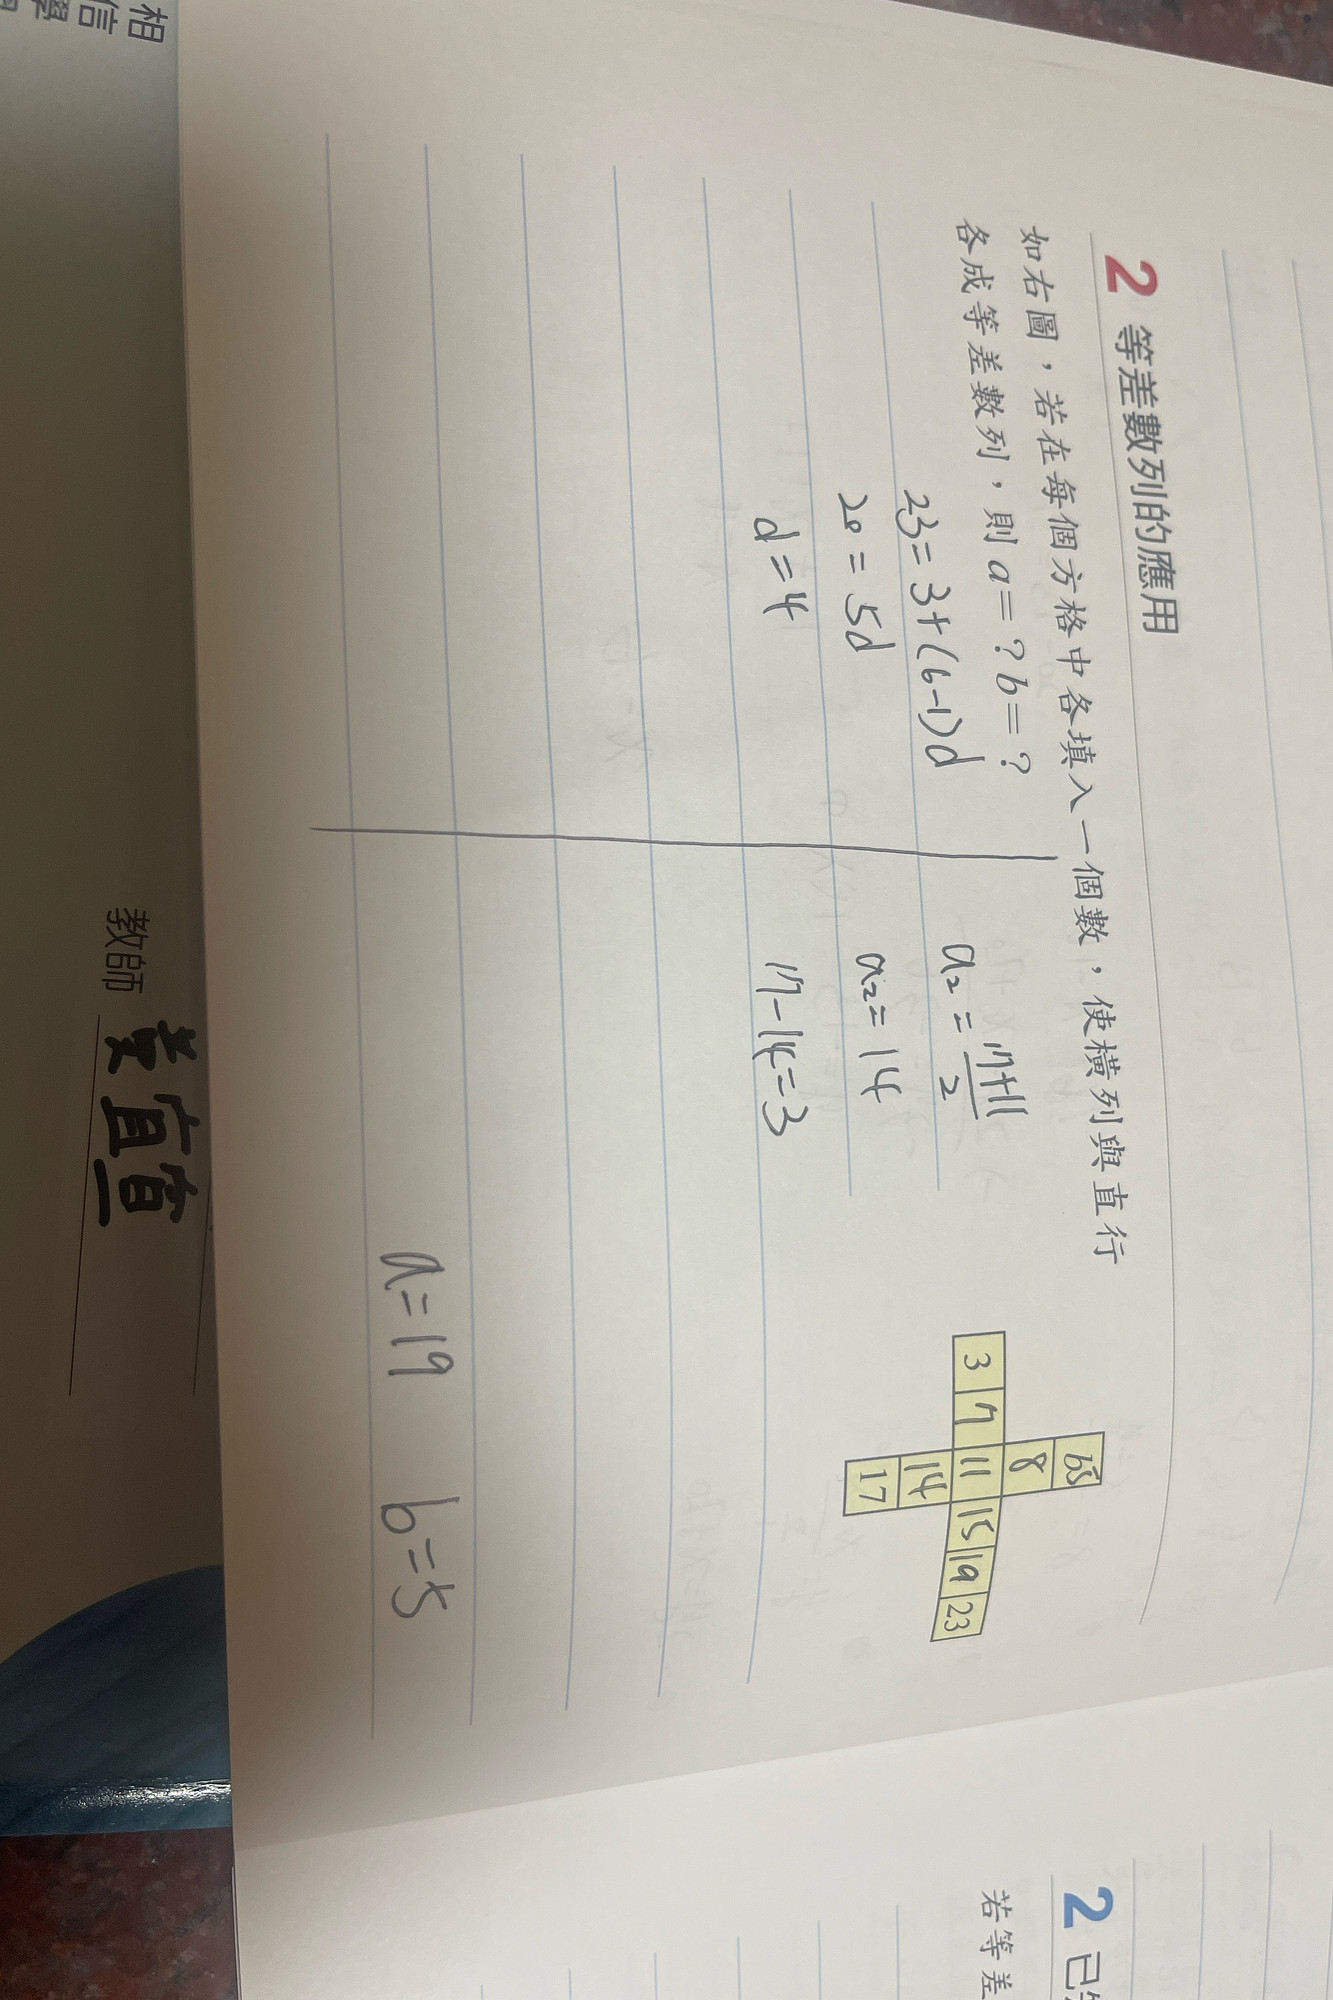 2 等差數列的應用
如右圖，若在每個方格中各填入一個數，使橫列與直行
各成等差數列，則a=？b=？
23=3+(6-1)d
20=5d
d=4
a₂=17+11/2
a₂=14
17-14=3
b5
8
3 7 11 15 19 23
14
17
a=19 b=5
2 已
若等差
教師
相
信